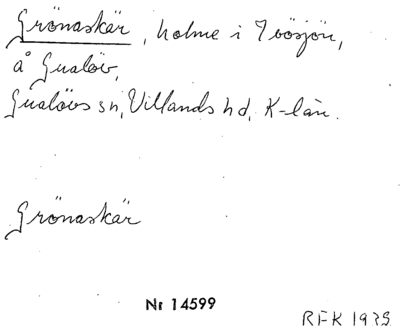 Grönaskär, holme i Ivösjön,
å Gualöv,
Gualövs sn, Villands hd, K-län.
Grönaskär
Nr 14599
RFK 1939